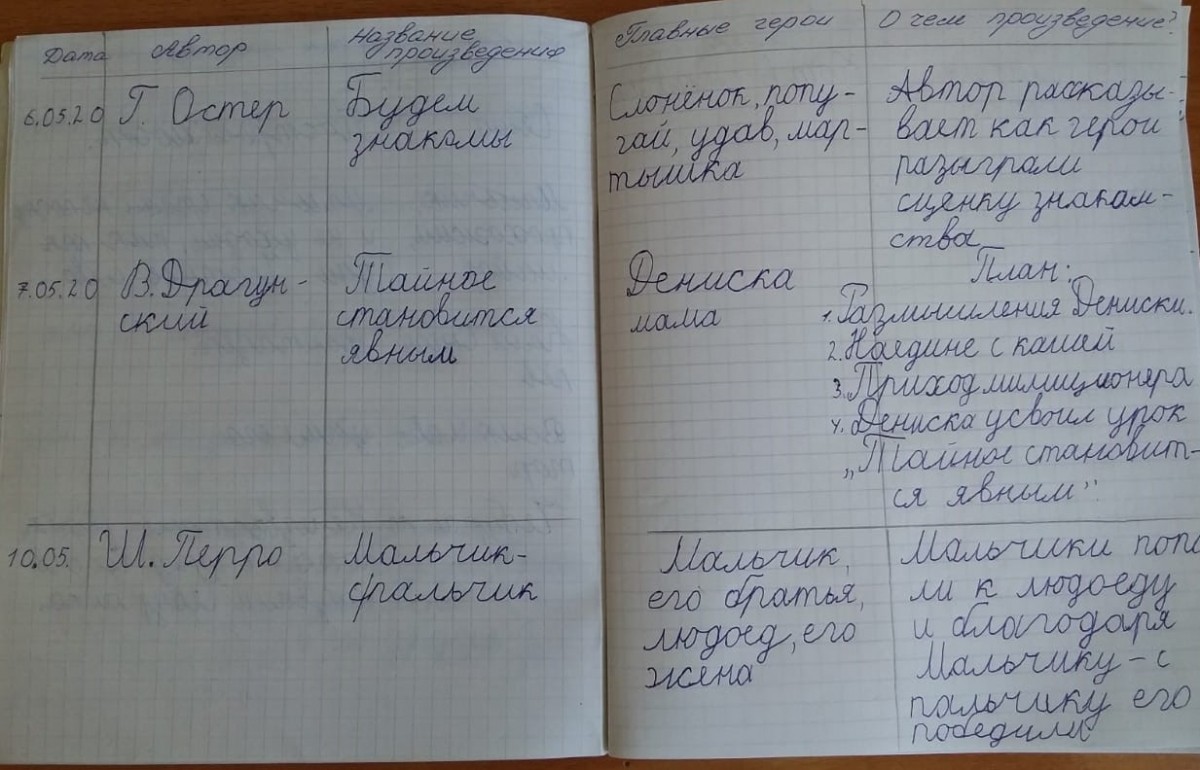 Дата Автор Название произведения Главные герои О чем произведение?
6.05.20 Г. Остер Будем знакомы
Слонёнок, попу-
гай, удав, мар-
тышка
Автор рассказы-
вает как герои
разыграли
сценку знаком-
ства
7.05.20 В. Драгун-
ский
Тайное
становится
явным
Дениска
мама
План:
1. Размышления Дениски.
2. Наедине с кашей
3. Приход милиционера
4. Дениска усвоил урок
„Тайное становит-
ся явным"
10.05. Ш. Перро
Мальчик-
с пальчик
Мальчик,
его братья,
людоед, его
жена
Мальчики попа
ли к людоеду
и благодаря
Мальчику - с
пальчику его
победили